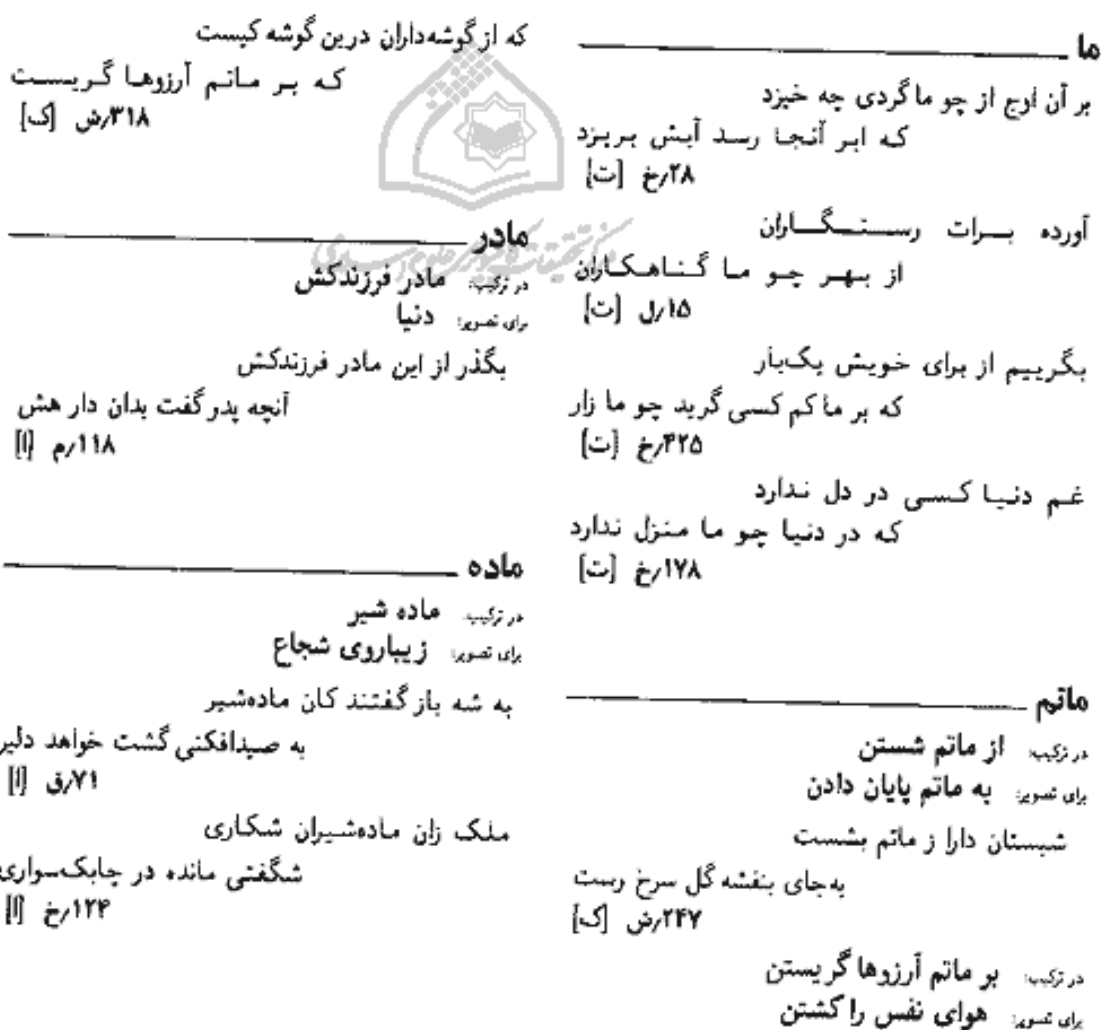 ما
بر آن اوج از چو ما گردی چه خیزد
که ابر آنجا رسد آبش بریزد
۲۸٫خ [ت]
آورده برات رستگاران
از بهر چو ما گناهکاران
۱۵٫ل [ت]
بگرییم از برای خویش یک‌بار
که بر ما کم کسی گرید چو ما زار
۴۲۵٫خ [ت]
غم دنیا کسی در دل ندارد
که در دنیا چو ما منزل ندارد
۱۷۸٫خ [ت]
ماتم
در ترکیب: از ماتم شستن
برای تصویر: به ماتم پایان دادن
شبستان دارا ز ماتم بشست
به‌جای بنفشه گل سرخ رست
۲۴۷٫ش [ک]
در ترکیب: بر ماتم آرزوها گریستن
برای تصویر: هوای نفس را کشتن
که از گوشه‌داران درین گوشه کیست
که بر ماتم آرزوها گریست
۳۱۸٫ش [ک]
مادر
در ترکیب: مادر فرزندکش
برای تصویر: دنیا
بگذر از این مادر فرزندکش
آنچه پدر گفت بدان دار هش
۱۱۸٫م [ا]
ماده
در ترکیب: ماده شیر
برای تصویر: زیباروی شجاع
به شه باز گفتند کان ماده‌شیر
به صیدافکنی گشت خواهد دلیر
۷۱٫ق [ا]
ملک زان ماده‌شیران شکاری
شگفتی مانده در چابک‌سواری
۱۲۴٫خ [ا]